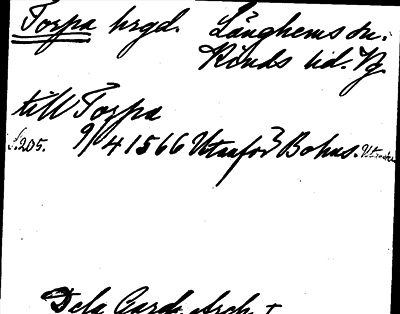 Torpa hrgd. Länghems sn.
Kinds hd. Vg.
till Torpa
s. 205. 9/4 1566 Utanför Bohus.
Dela Gard. Ark